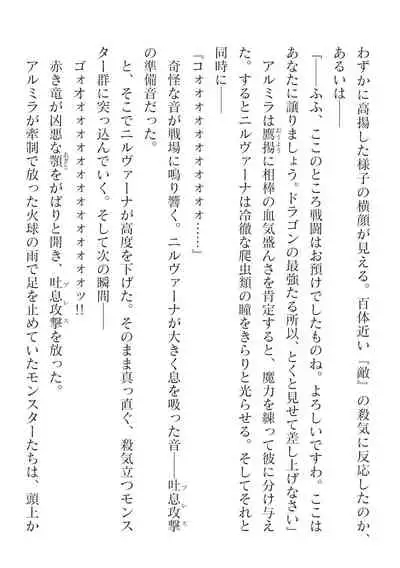 わずかに高揚した様子の横顔が見える。百体近い『敵』の殺気に反応したのか、
あるいは――
「――ふふ、ここのところ戦闘はお預けでしたものね。よろしいですわ。ここは
あなたに譲りましょう。ドラゴンの最強たる所以、とくと見せて差し上げなさい」
アルミラは鷹揚に相棒の血気盛んさを肯定すると、魔力を練って彼に分け与え
た。するとニルヴァーナは冷徹な爬虫類の瞳をきらりと光らせる。そしてそれと
同時に――
『コォォォォォォォォォォォ……』
奇怪な音が戦場に鳴り響く。ニルヴァーナが大きく息を吸った音――吐息攻撃
の準備音だった。
と、そこでニルヴァーナが高度を下げた。そのまま真っ直ぐ、殺気立つモンス
ター群に突っ込んでいく。そして次の瞬間――
ゴォオオオオオオオオオオオッ!!
赤き竜が凶悪な顎をがばりと開き、吐息攻撃を放った。
アルミラが牽制で放った火球の雨で足を止めていたモンスターたちは、頭上か